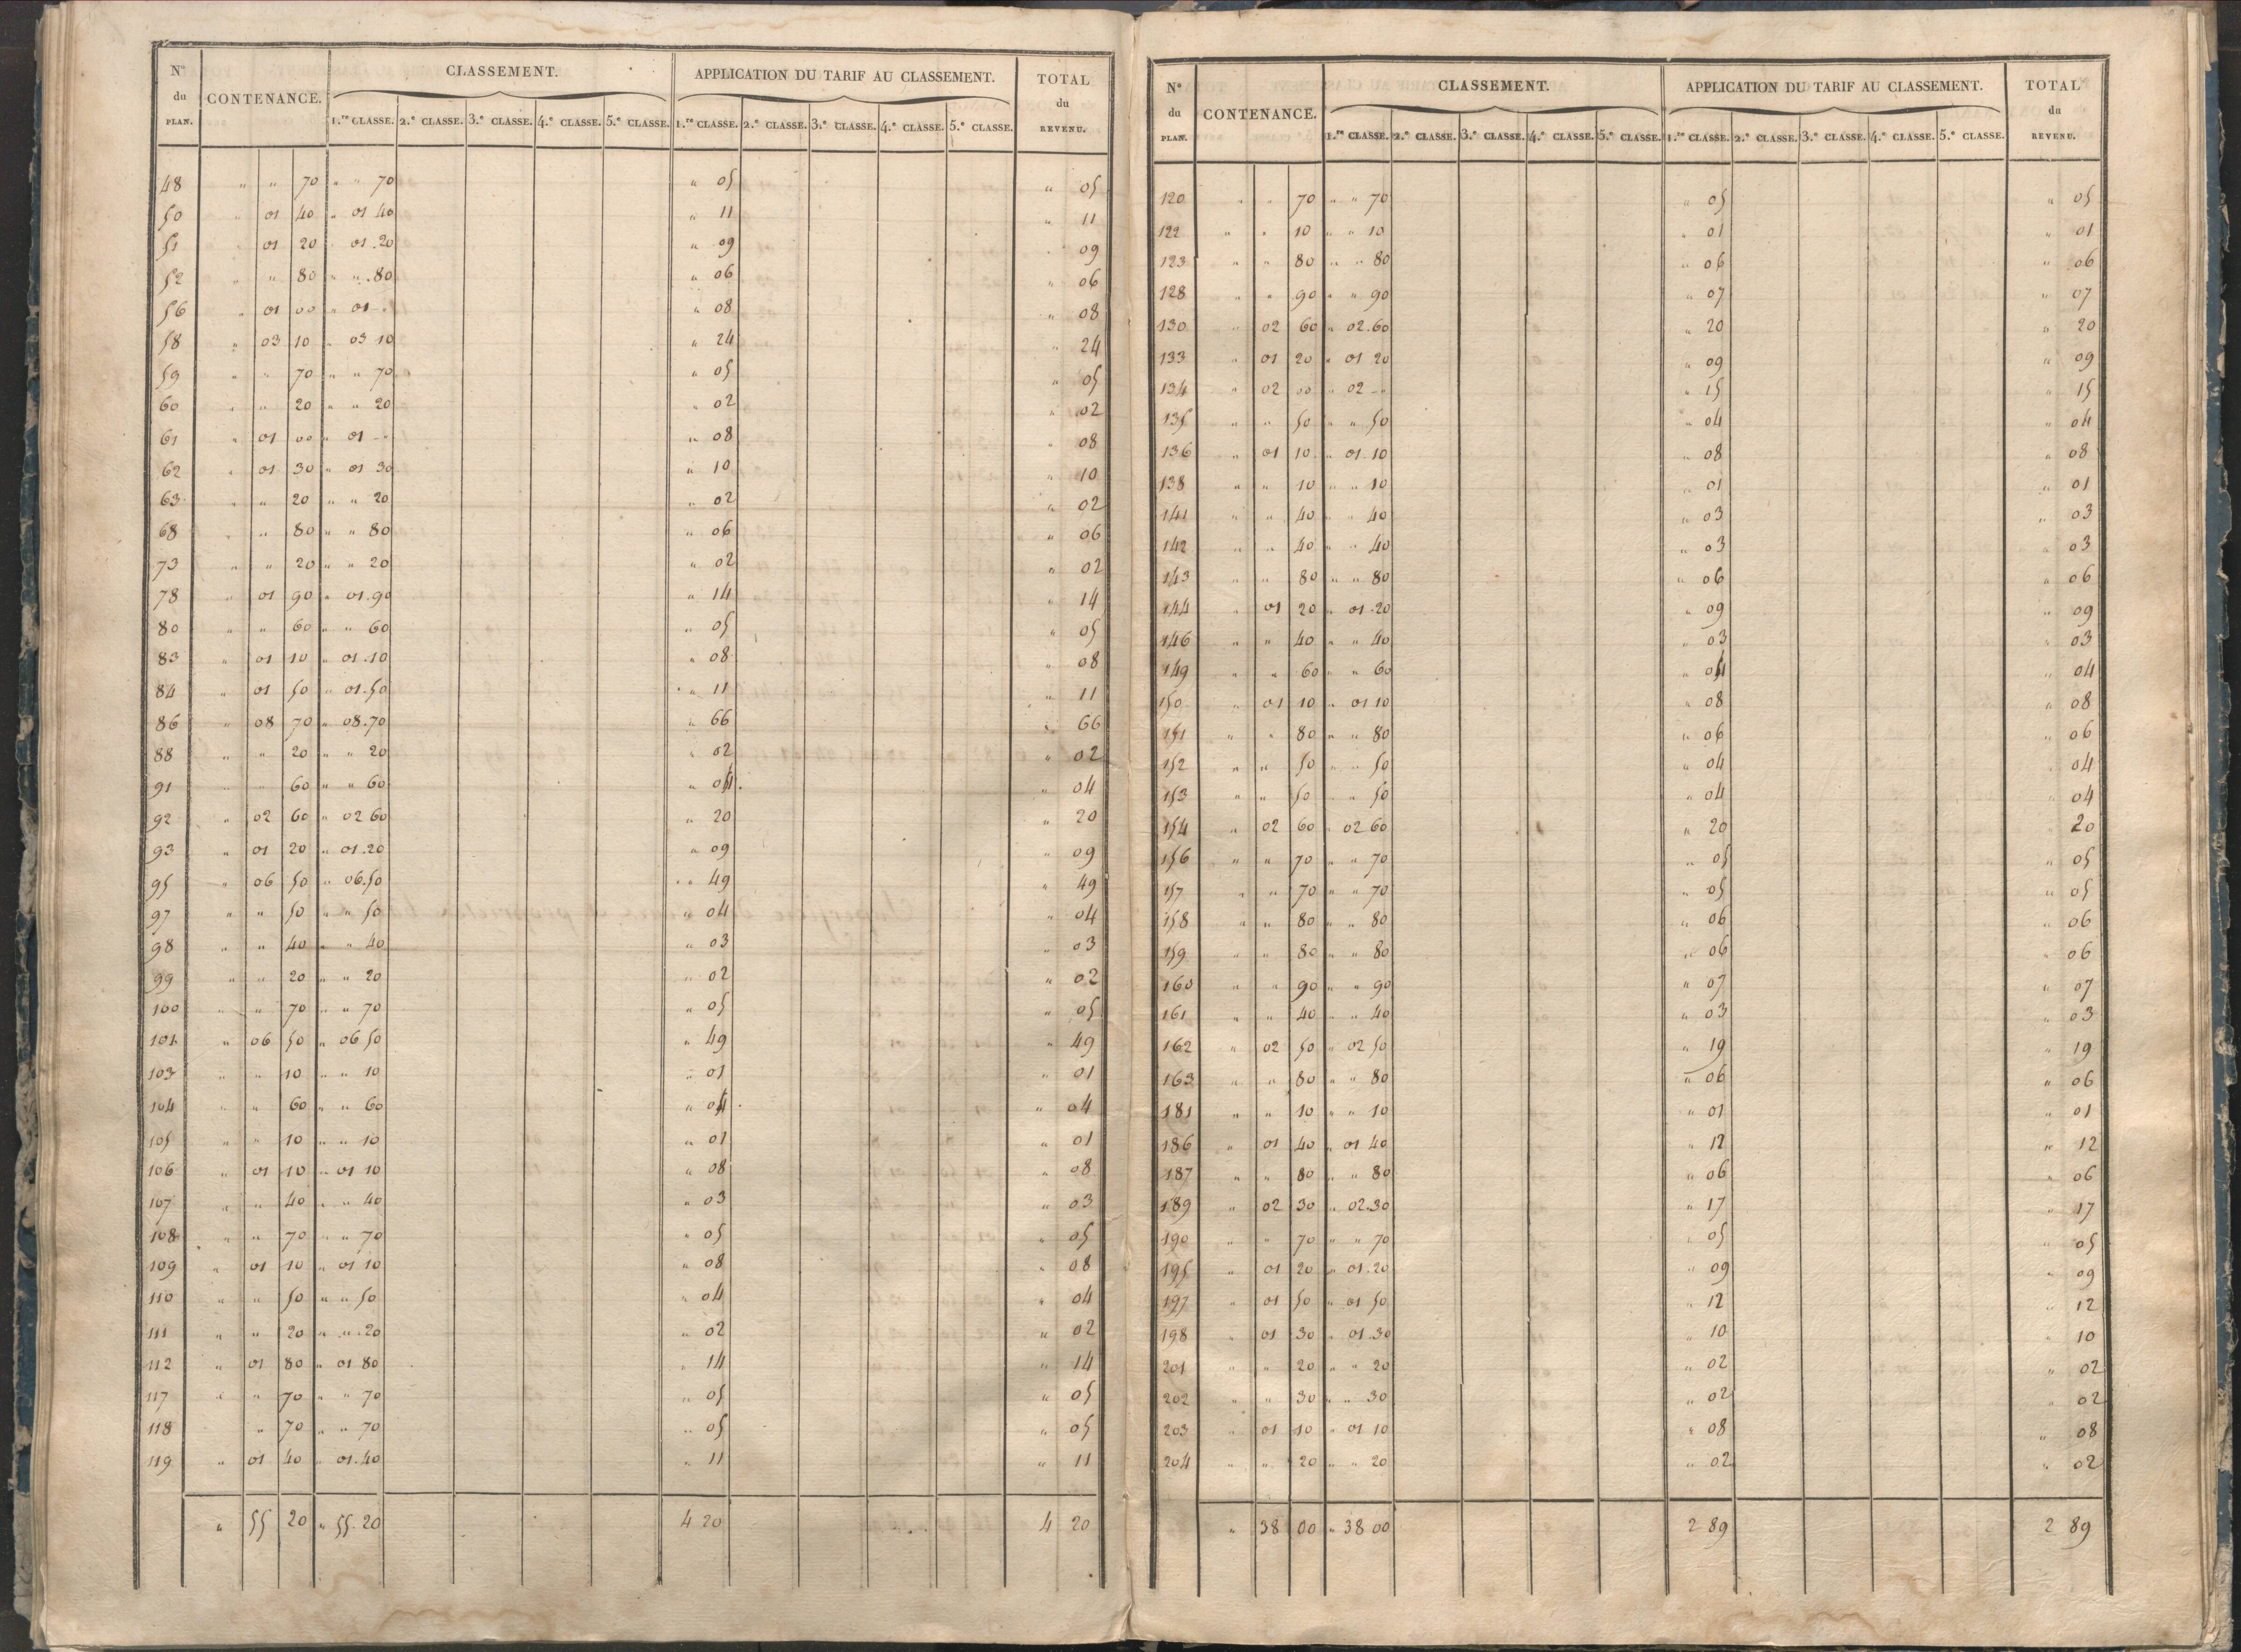 N° du PLAN. CONTENANCE. CLASSEMENT. APPLICATION DU TARIF AU CLASSEMENT. TOTAL du REVENU.
1.re CLASSE. 2.e CLASSE. 3.e CLASSE. 4.e CLASSE. 5.e CLASSE. 1.re CLASSE. 2.e CLASSE. 3.e CLASSE. 4.e CLASSE. 5.e CLASSE.
48 " " 70 " " 70 " 05 " 05
50 " 01 40 " 01 40 " 11 " 11
51 " 01 20 " 01.20 " 09 " 09
52 " " 80 " " .80 " 06 " 06
56 " 01 00 " 01 " " 08 " 08
58 " 03 10 " 03 10 " 24 " 24
59 " " 70 " " 70 " 05 " 05
60 " " 20 " " 20 " 02 " 02
61 " 01 00 " 01 - " 08 " 08
62 " 01 30 " 01 30 " 10 " 10
63 " " 20 " " 20 " 02 " 02
68 " " 80 " " 80 " 06 " 06
73 " " 20 " " 20 " 02 " 02
78 " 01 90 " 01.90 " 14 " 14
80 " " 60 " " 60 " 05 " 05
83 " 01 10 " 01.10 " 08 " 08
84 " 01 50 " 01.50 " 11 " 11
86 " 08 70 " 08.70 " 66 " 66
88 " " 20 " " 20 " 02 " 02
91 " " 60 " " 60 " 04 " 04
92 " 02 60 " 02 60 " 20 " 20
93 " 01 20 " 01.20 " 09 " 09
95 " 06 50 " 06.50 " 49 " 49
97 " " 50 " " 50 " 04 " 04
98 " " 40 " " 40 " 03 " 03
99 " " 20 " " 20 " 02 " 02
100 " " 70 " " 70 " 05 " 05
101 " 06 50 " 06 50 " 49 " 49
103 " " 10 " " 10 " 01 " 01
104 " " 60 " " 60 " 04 " 04
105 " " 10 " " 10 " 01 " 01
106 " 01 10 " 01 10 " 08 " 08
107 " " 40 " " 40 " 03 " 03
108 " " 70 " " 70 " 05 " 05
109 " 01 10 " 01 10 " 08 " 08
110 " " 50 " " 50 " 04 " 04
111 " " 20 " " .20 " 02 " 02
112 " 01 80 " 01 80 " 14 " 14
117 " " 70 " " 70 " 05 " 05
118 " 70 " " 70 " 05 " 05
119 " 01 40 " 01.40 " 11 " 11
" 55 20 " 55.20 4 20 4 20
N° du PLAN. CONTENANCE. CLASSEMENT. APPLICATION DU TARIF AU CLASSEMENT. TOTAL du REVENU.
1.re CLASSE. 2.e CLASSE. 3.e CLASSE. 4.e CLASSE. 5.e CLASSE. 1.re CLASSE. 2.e CLASSE. 3.e CLASSE. 4.e CLASSE. 5.e CLASSE.
120 " " 70 " " 70 " 05 " 05
122 " " 10 " " 10 " 01 " 01
123 " " 80 " " 80 " 06 " 06
128 " " 90 " " 90 " 07 " 07
130 " 02 60 " 02.60 " 20 " 20
133 " 01 20 " 01 20 " 09 " 09
134 " 02 00 " 02 - " 15 " 15
135 " " 50 " " 50 " 04 " 04
136 " 01 10 " 01.10 " 08 " 08
138 " " 10 " " 10 " 01 " 01
141 " " 40 " " 40 " 03 " 03
142 " " 40 " " 40 " 03 " 03
143 " " 80 " " 80 " 06 " 06
144 " 01 20 " 01.20 " 09 " 09
146 " " 40 " " 40 " 03 " 03
149 " " 60 " " 60 " 04 " 04
150 " 01 10 " 01 10 " 08 " 08
151 " " 80 " " 80 " 06 " 06
152 " " 50 " " 50 " 04 " 04
153 " " 50 " " 50 " 04 " 04
154 " 02 60 " 02 60 " 20 " 20
156 " " 70 " " 70 " 05 " 05
157 " " 70 " " 70 " 05 " 05
158 " " 80 " " 80 " 06 " 06
159 " " 80 " " 80 " 06 " 06
160 " " 90 " " 90 " 07 " 07
161 " " 40 " " 40 " 03 " 03
162 " 02 50 " 02 50 " 19 " 19
163 " " 80 " " 80 " 06 " 06
181 " " 10 " " 10 " 01 " 01
186 " 01 40 " 01 40 " 12 " 12
187 " " 80 " " 80 " 06 " 06
189 " 02 30 " 02.30 " 17 " 17
190 " " 70 " " 70 " 05 " 05
195 " 01 20 " 01.20 " 09 " 09
197 " 01 50 " 01 50 " 12 " 12
198 " 01 30 " 01.30 " 10 " 10
201 " " 20 " " 20 " 02 " 02
202 " " 30 " " 30 " 02 " 02
203 " 01 10 " 01 10 " 08 " 08
204 " " 20 " " 20 " 02 " 02
" 38 00 " 38 00 2 89 2 89